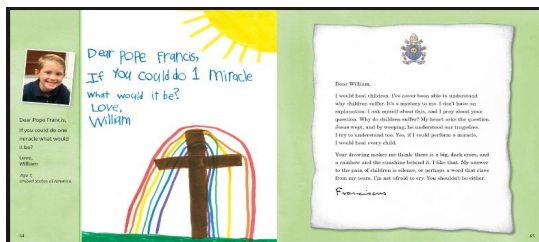 Dear Pope Francis,
If you could do one
miracle what would
it be?
Love,
William
Age 7,
United States of America
44
Dear POPE Francis,
If You could do 1 Miracle
what would it be?
LOVE,
William
Dear William,
I would heal children. I've never been able to understand
why children suffer. It's a mystery to me. I don't have an
explanation. I ask myself about this, and I pray about your
question. Why do children suffer? My heart asks the question.
Jesus wept, and by weeping, he understood our tragedies.
I try to understand too. Yes, if I could perform a miracle,
I would heal every child.
Your drawing makes me think: there is a big, dark cross, and
a rainbow and the sunshine behind it. I like that. My answer
to the pain of children is silence, or perhaps a word that rises
from my tears. I'm not afraid to cry. You shouldn't be either.
Franciscus
45